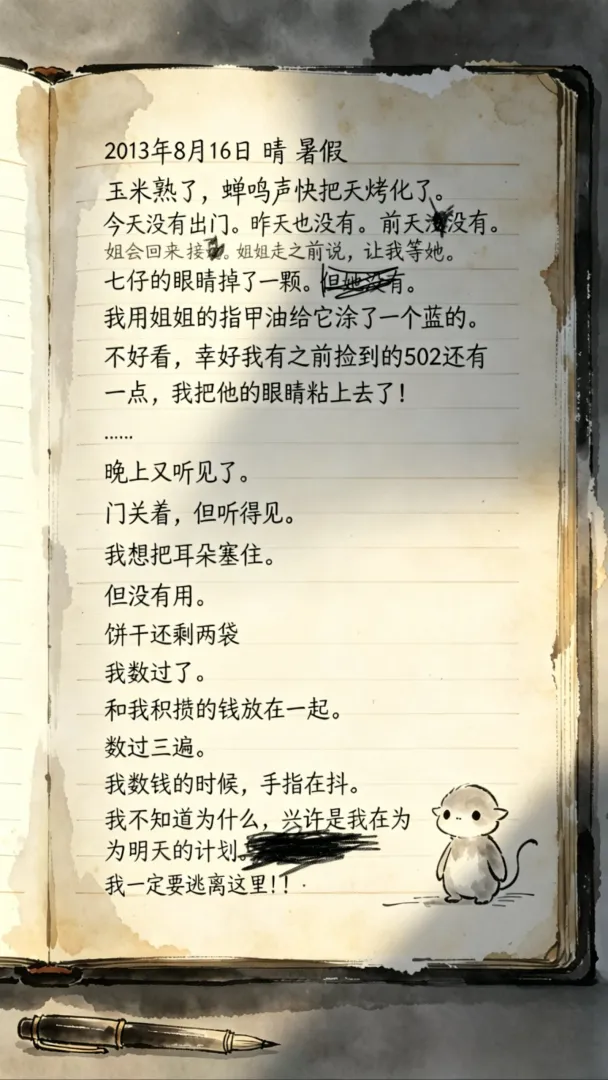 2013年8月16日 晴 暑假
玉米熟了，蝉鸣声快把天烤化了。
今天没有出门。昨天也没有。前天没有。
姐会回来接。姐姐走之前说，让我等她。
七仔的眼睛掉了一颗。但她没有。
我用姐姐的指甲油给它涂了一个蓝的。
不好看，幸好我有之前捡到的502还有
一点，我把他的眼睛粘上去了！
……
晚上又听见了。
门关着，但听得见。
我想把耳朵塞住。
但没有用。
饼干还剩两袋
我数过了。
和我积攒的钱放在一起。
数过三遍。
我数钱的时候，手指在抖。
我不知道为什么，兴许是我在为
为明天的计划。
我一定要逃离这里！！